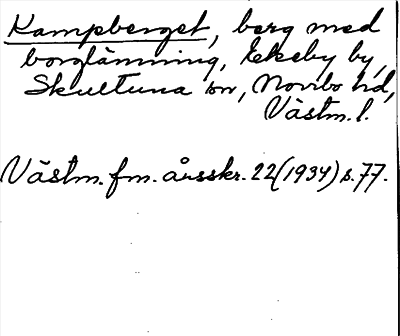 Kampberget, berg med
borglämning, Ekeby by,
Skultuna sn, Norrbo hd,
Västm. l.
Västm. fm. årsskr. 22(1934) s. 77.